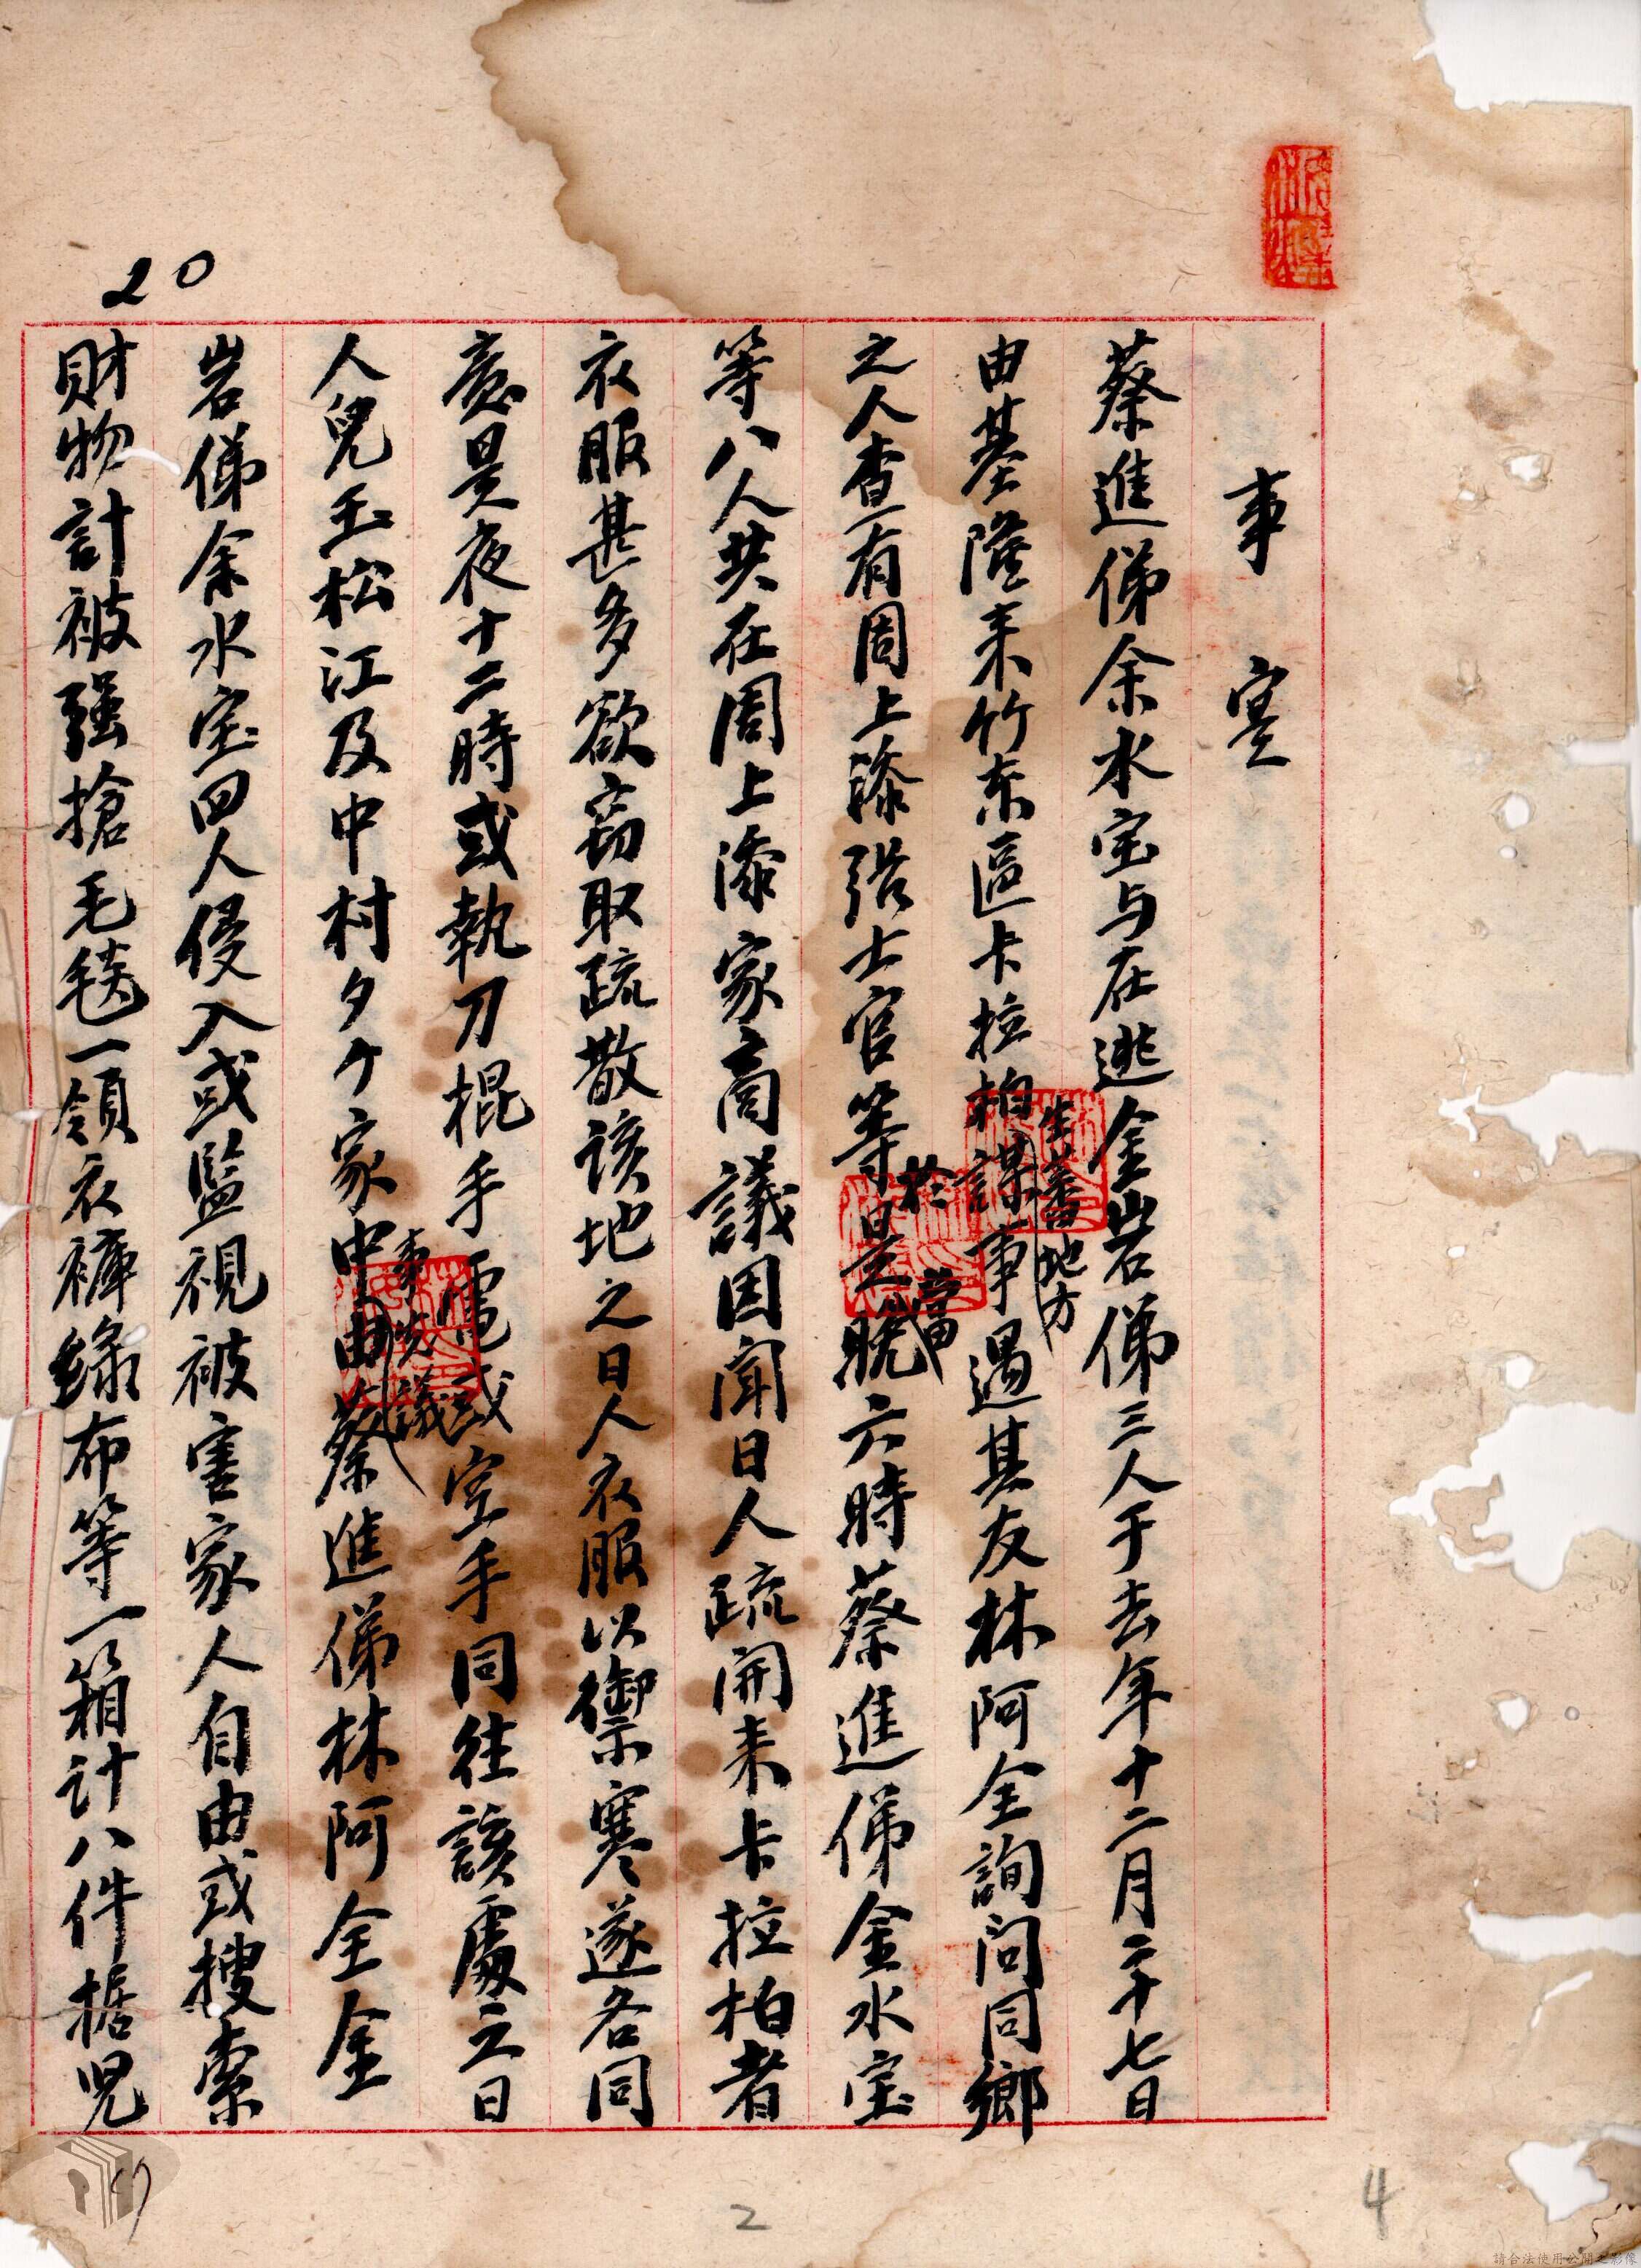 事實
蔡進俤余水宝与在逃金岩俤三人于去年十二月二十七日
由基隆来竹东區卡拉柏生蕃地方謀事遇其友林阿全詢问同鄉
之人查有周上漆張士官等於是日當晚六時蔡進俤金水宝
等八人共在周上漆家商議因闻日人疏開来卡拉柏者
衣服甚多欲窃取疏散该地之日人衣服以禦寒遂各同
意是夜十二時或執刀棍手電或空手同往該處之日
人兒玉松江及中村夕ケ家中事先議由蔡進俤林阿全金
岩俤余水宝四人侵入或監視被害家人自由或搜索
財物計被强搶毛毯一領衣褲綠布等一箱计八件据児
20
2
4
請合法使用公開之影像